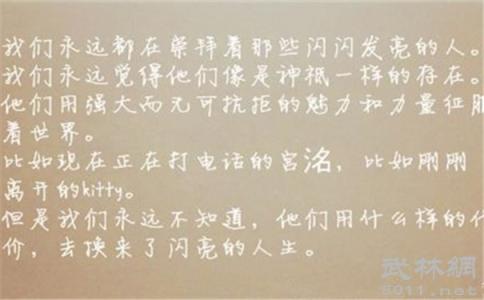 我们永远都在崇拜着那些闪闪发亮的人。
我们永远觉得他们像是神祇一样的存在。
他们用强大而无可抗拒的魅力和力量征服
着世界。
比如现在正在打电话的宫洺，比如刚刚
离开的kitty。
但是我们永远不知道，他们用什么样的代
价，去换来了闪亮的人生。
武林網
5011.net